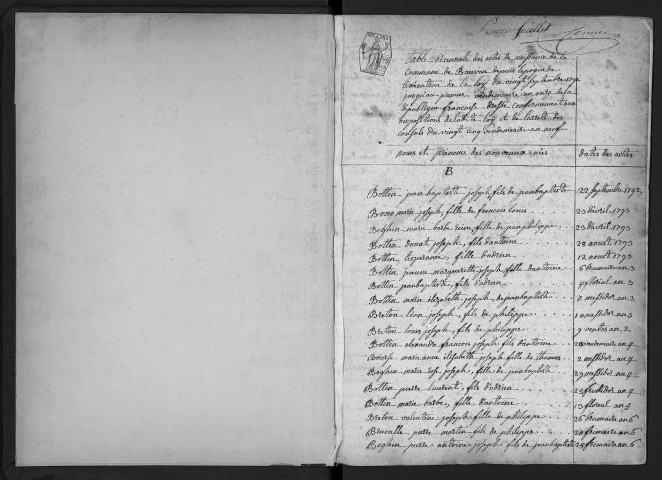 Premier feuillet
Table décennale des actes de naissance de la
Commune de Bauvin depuis l'epoque de
l'execution de la loy du vingt septembre 1792
jusqu'au premier vendemiaire an onze de la
république francaise dressée conformement aux
dispositions de la loy et de l'arrêté des
consuls du vingt cinq vendemiaire an neuf
noms et prenoms des nouveaux nées dates des actes
B
Botten jean baptiste joseph, fils de jean baptiste 22 Septembre 1792
Bono marie joseph, fille de francois louis 23 d'avril 1793
Beghin marie barbe, fille de jean philippe 23 d'avril 1793
Botten donat joseph, fils d'antoine 28 aoust 1793
Botten, fille d'adrien 12 aoust 1793
Botten jeanne marguerite joseph fille d'antoine 6 brumaire an 3
Botten jean baptiste, fils d'adrien 4 floreal an 3
Botten marie elizabeth joseph, de jean baptiste 7 messidor an 3
Breton léon joseph, fils de philippe 10 messidor an 3
Breton louis joseph, fils de philippe 9 ventos an 2
Botten alexandre francois joseph fils d'antoine 20 vendemiaire an 4
Bourse marie anne elisabeth joseph fille de thomas 2 messidor an 4
Beghin marie rose joseph, fille de jean baptiste 29 messidor an 4
Botten pierre laurent, fils d'adrien 25 fructidor an 4
Botten marie barbe, fille d'antoine 13 floreal an 5
Breton valentine joseph fille de philippe 26 brumaire an 6
Brunelle pierre martin fils de philippe 20 frimaire an 6
Beghin pierre antoine joseph fils de jean baptiste 25 frimaire an 6